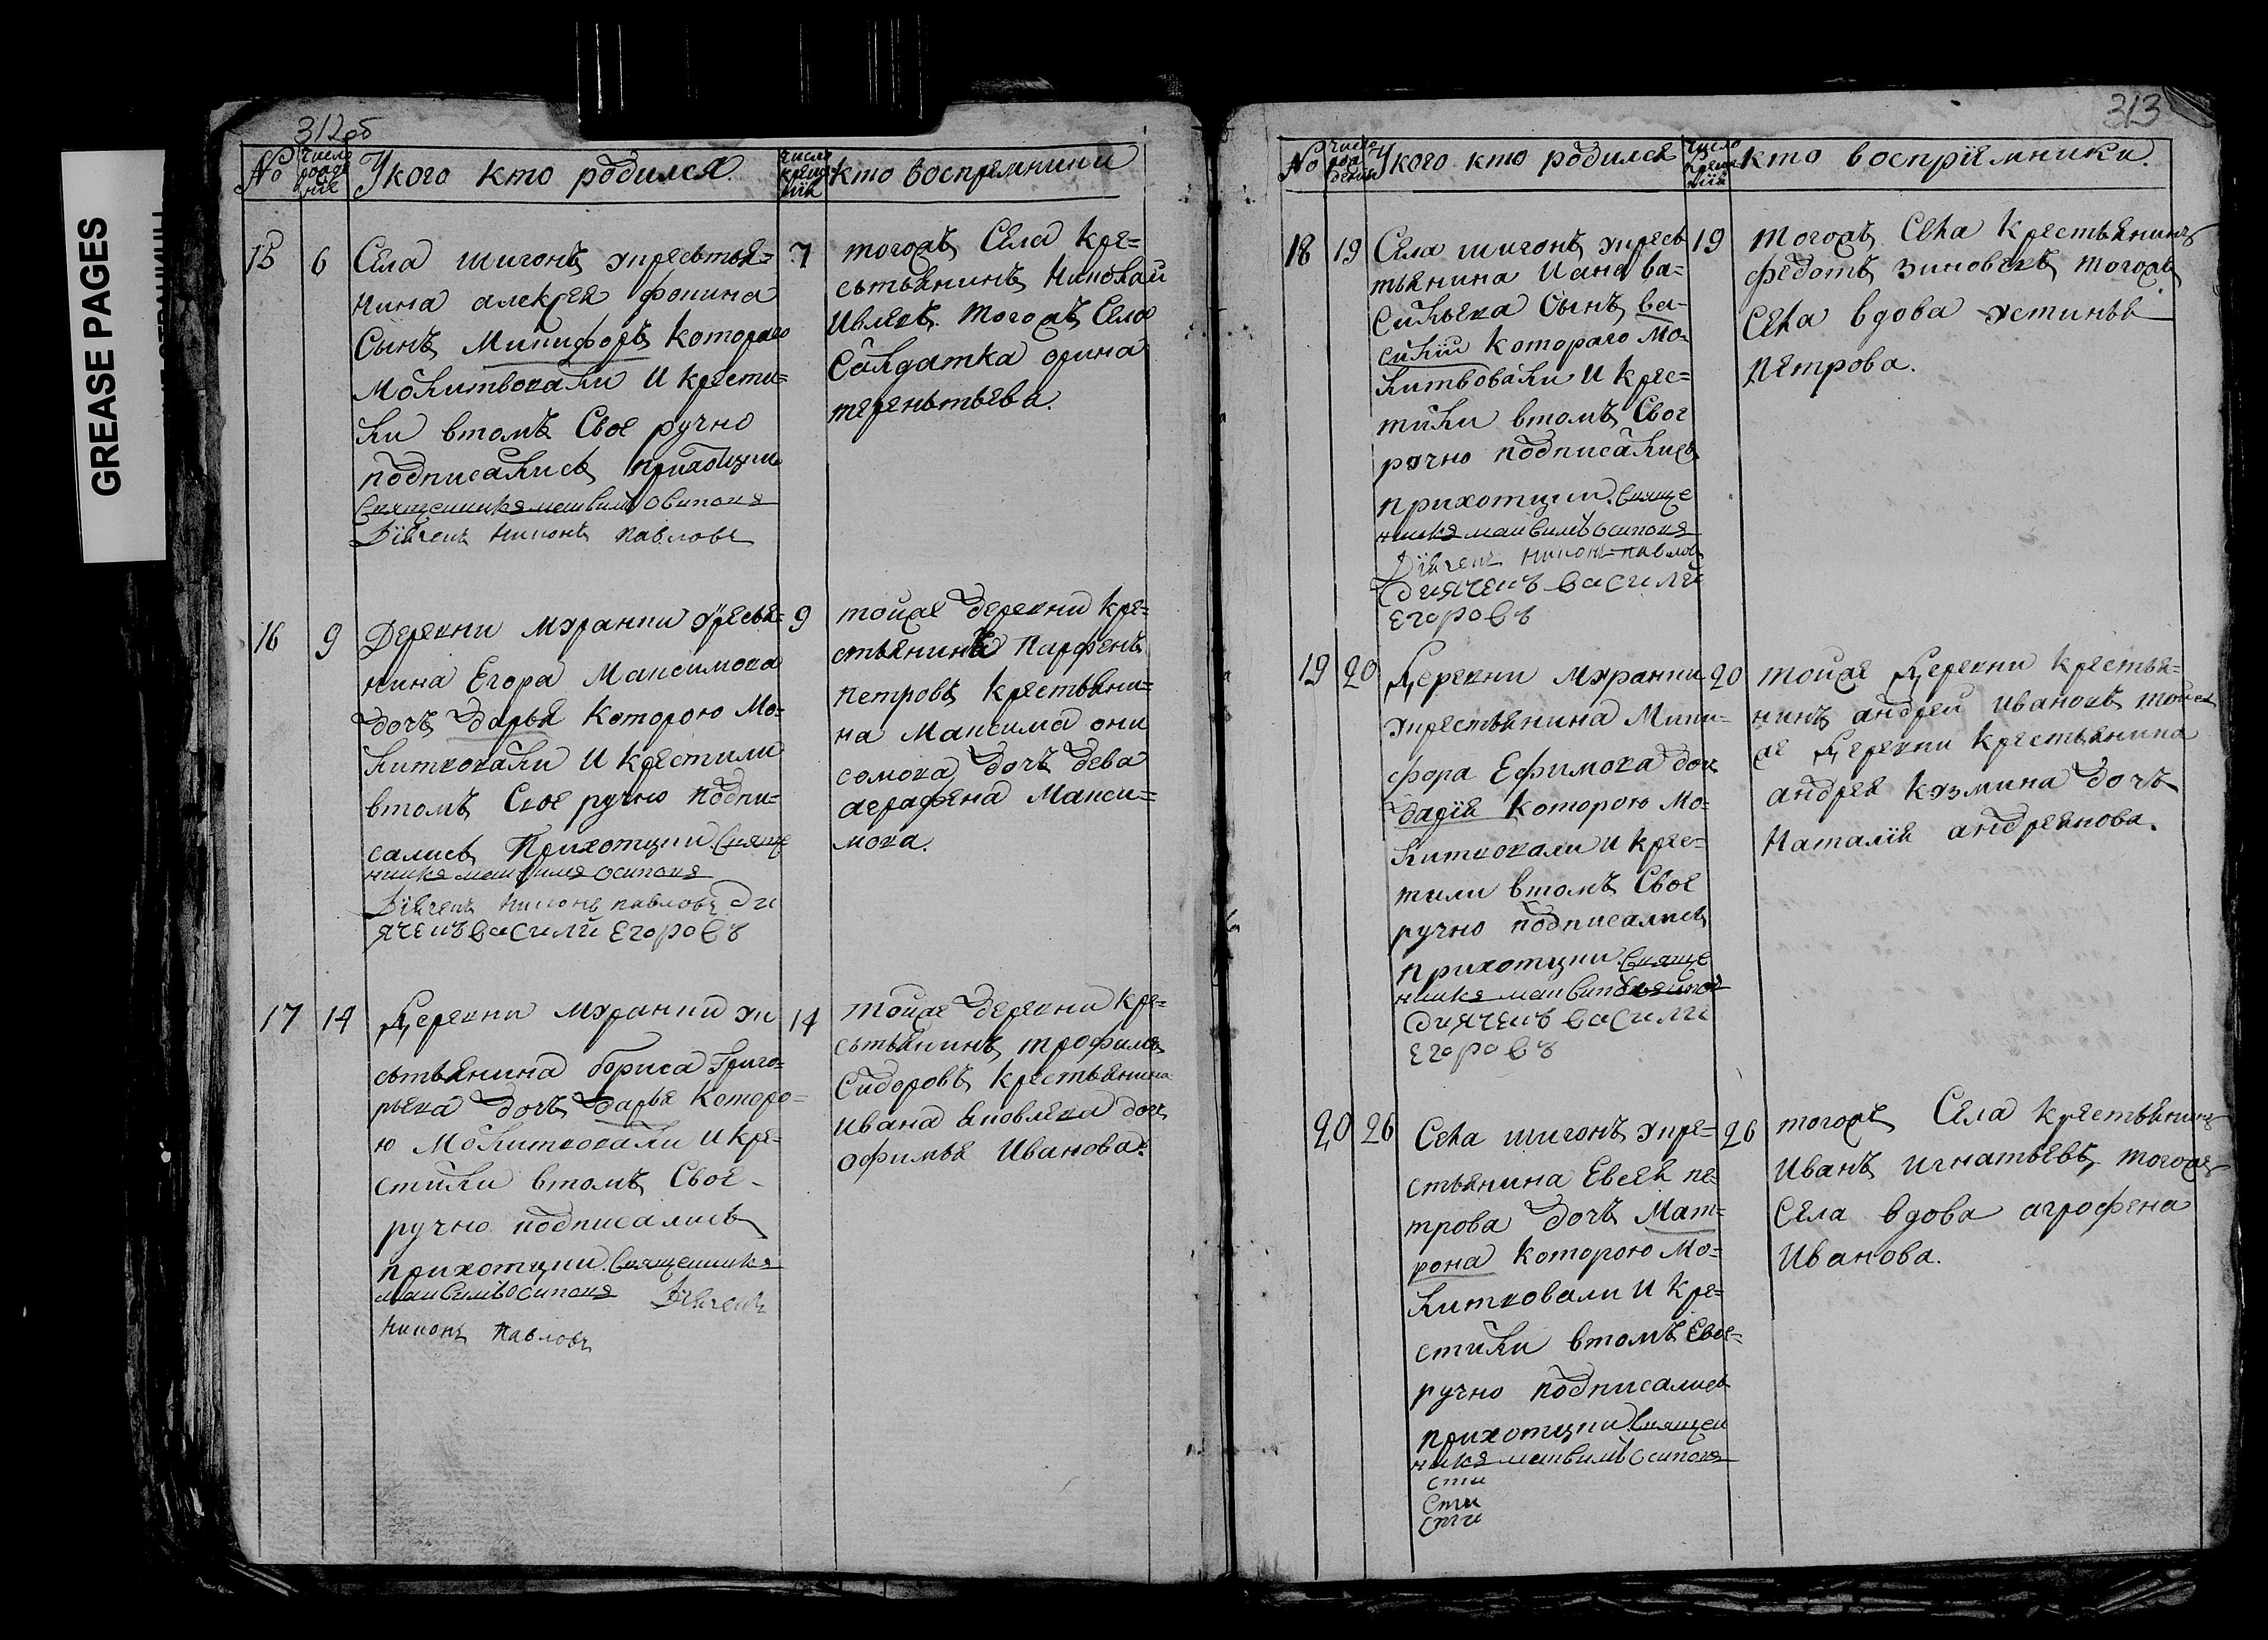 GREASE PAGES
312об
№
число
рожде
нiе
У кого кто родился.
число
креще
нiя
кто воспремники
15
6
Села шигонъ укресьтья=
нина алексея фокина
Сынъ Микифоръ которого
молитвовали и крести=
ли втомъ Свое ручно
подписались прихотцкие
Священникъ матвий Осиповъ
Дiяченъ никонъ павловъ
7
тогожъ Села кре=
сьтьянинъ Николай
Ивлевъ. тогожъ Села
Салдатка орина
терентьева.
16
9
Деревни муранки укресья=
нина Егора Максимова
дочь дарья которою мо=
литвовали и крестили
втомъ Свое ручно подпи=
сались Прихотцкие. Свяще
никъ матвий Осиповъ
Дiяченъ никонъ павловъ Ди
яченъ васили Егоровъ
9
тойже деревни кре=
стьянинъ Парфенъ
петровъ крестьяни=
на Максима они
симова дочь дева
аграфена Макси=
мова.
17
14
Деревни муранки ук
сьтьянина бориса Григо=
рьева дочь дарья которо=
ю молитвовали и кре=
стили втомъ Свое
ручно подписались
прихотцкие. Священникъ
матвий Осиповъ Дiяченъ
никонъ павловъ
14
тойже деревни кре=
сьтьянинъ трофимъ
Сидоровъ крестьянина
ивана яковлева дочь
офимья Иванова.
313
№
число
рож
дения
У кого кто родился
число
креще
нiя
кто воспрiемники.
18
19
Села шигонъ укресь
тьянина Ивана ва=
сильева Сынъ ва=
силiй которого мо=
литвовали и крес=
тили втомъ Свое
ручно подписались
прихотцкие. Свяще
никъ матвий Осиповъ
Дiяченъ никонъ павловъ
Дияченъ васили
Егоровъ
19
тогожъ Села крестьянинъ
федотъ зиновевъ тогожъ
Села вдова устинья
петрова.
19
20
Деревни муранки
укрестьянина Мики=
фора Ефимова дочь
дарiя которою мо=
литвовали и крес=
тили втомъ Свое
ручно подписались
прихотцкие. Свяще
никъ матвий Осиповъ
Дияченъ васили
Егоровъ
20
тойже Деревни крестья=
нинъ андрей ивановъ той
же Деревни крестьянина
андрея кузмина дочь
Наталiя андреянова.
20
26
Села шигонъ укре=
стьянина Евсея пе=
трова дочь Мат=
рона которою мо=
литвовали и кре=
стили втомъ Свое=
ручно подписались
прихотцкие. Священ
никъ матвий Осиповъ
сти
сти
сти
26
тогоже Села крестьянинъ
Иванъ игнатьевъ, тогоже
Села вдова агрофена
Иванова.